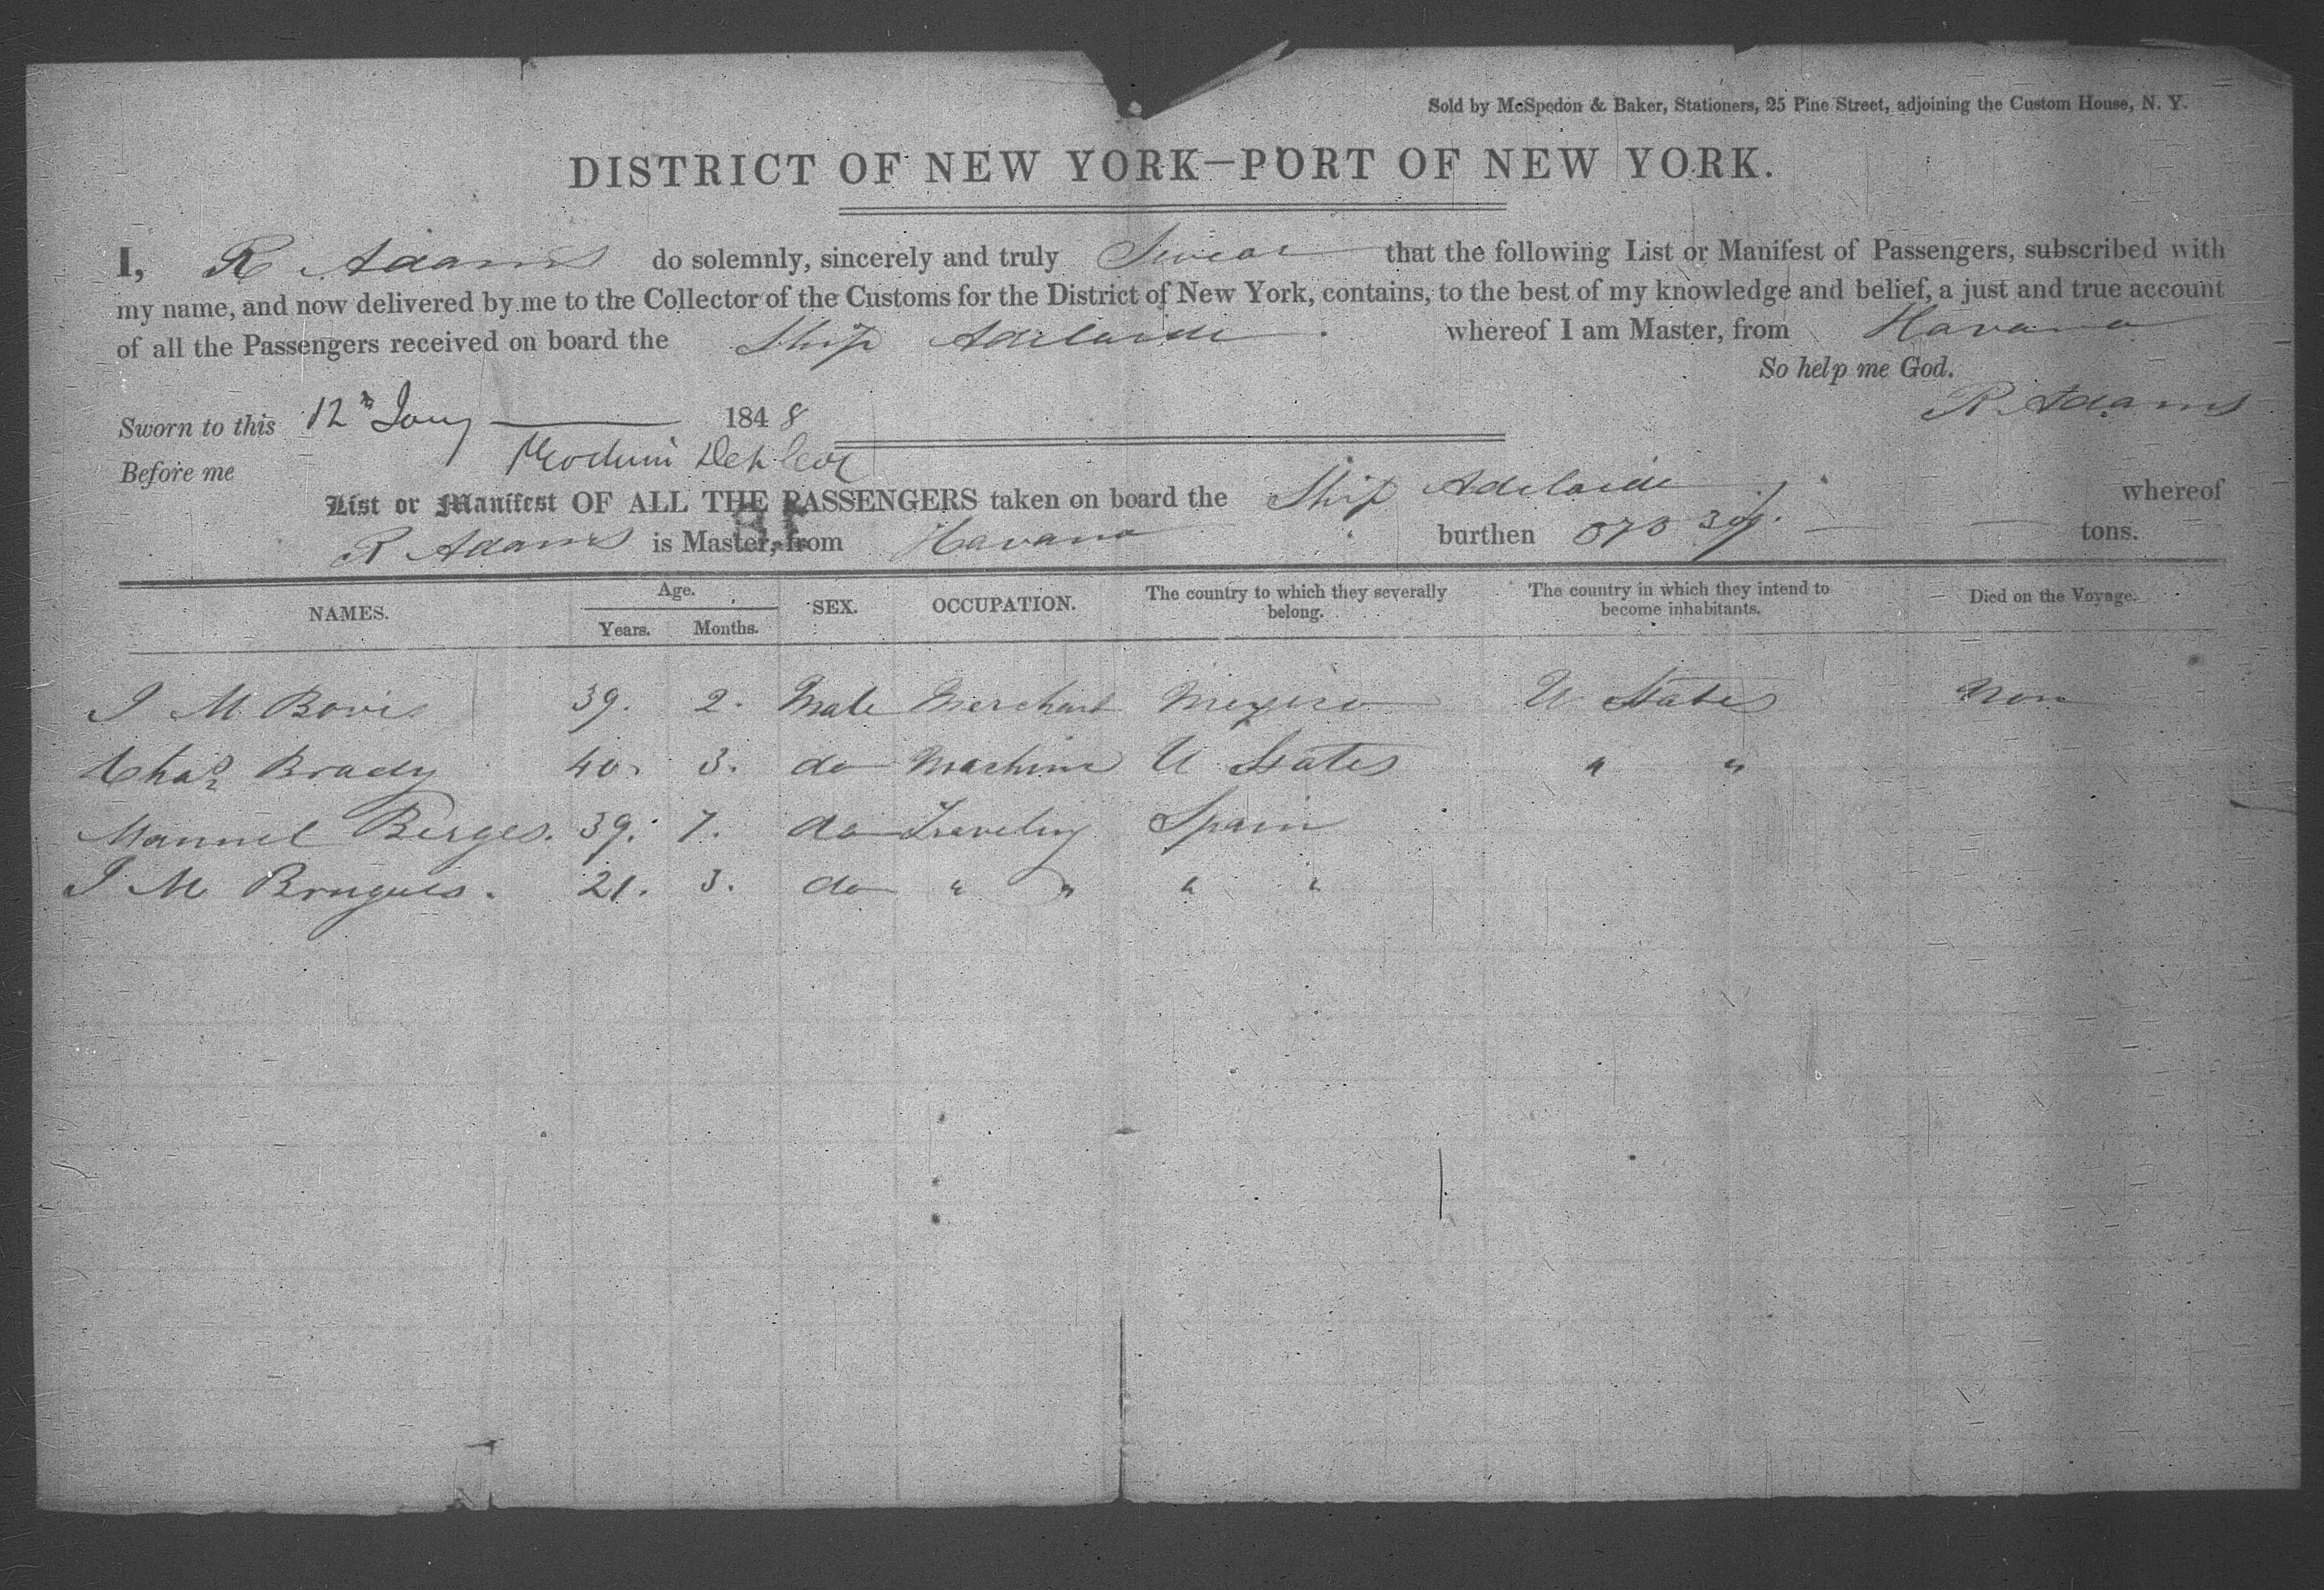 Sold by McSpedon & Baker, Stationers, 25 Pine Street, adjoining the Custom House, N. Y.
DISTRICT OF NEW YORK—PORT OF NEW YORK.
I, R Adams do solemnly, sincerely and truly Swear that the following List or Manifest of Passengers, subscribed with
my name, and now delivered by me to the Collector of the Customs for the District of New York, contains, to the best of my knowledge and belief, a just and true account
of all the Passengers received on board the Ship Adelaide whereof I am Master, from Havana
So help me God.
R Adams
Sworn to this 12th Jany 1848
Before me
List or Manifest OF ALL THE PASSENGERS taken on board the Ship Adelaide whereof
R Adams is Master, from Havana burthen tons.
NAMES. Age. Years. Months. SEX. OCCUPATION. The country to which they severally belong. The country in which they intend to become inhabitants. Died on the Voyage.
J M Bovis 39. 2. Male Merchant Mexico U States Non
Chas Brady 40. 3. do Machine U States " "
Manuel Berges. 39. 7. do Traveling Spain
J M Brugues. 21. 3. do " " " "